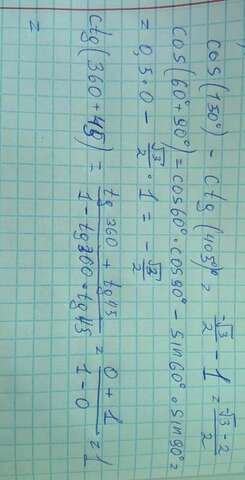 cos(150°) - ctg(405)° = -√3/2 - 1 = -√3-2/2
cos(60°+90°) = cos60°·cos90° - sin60°·sin90° =
= 0,5·0 - √3/2 · 1 = -√3/2
ctg(360+45) = tg360 + tg45 / 1-tg360·tg45 = 0+1/1-0 = 1
=